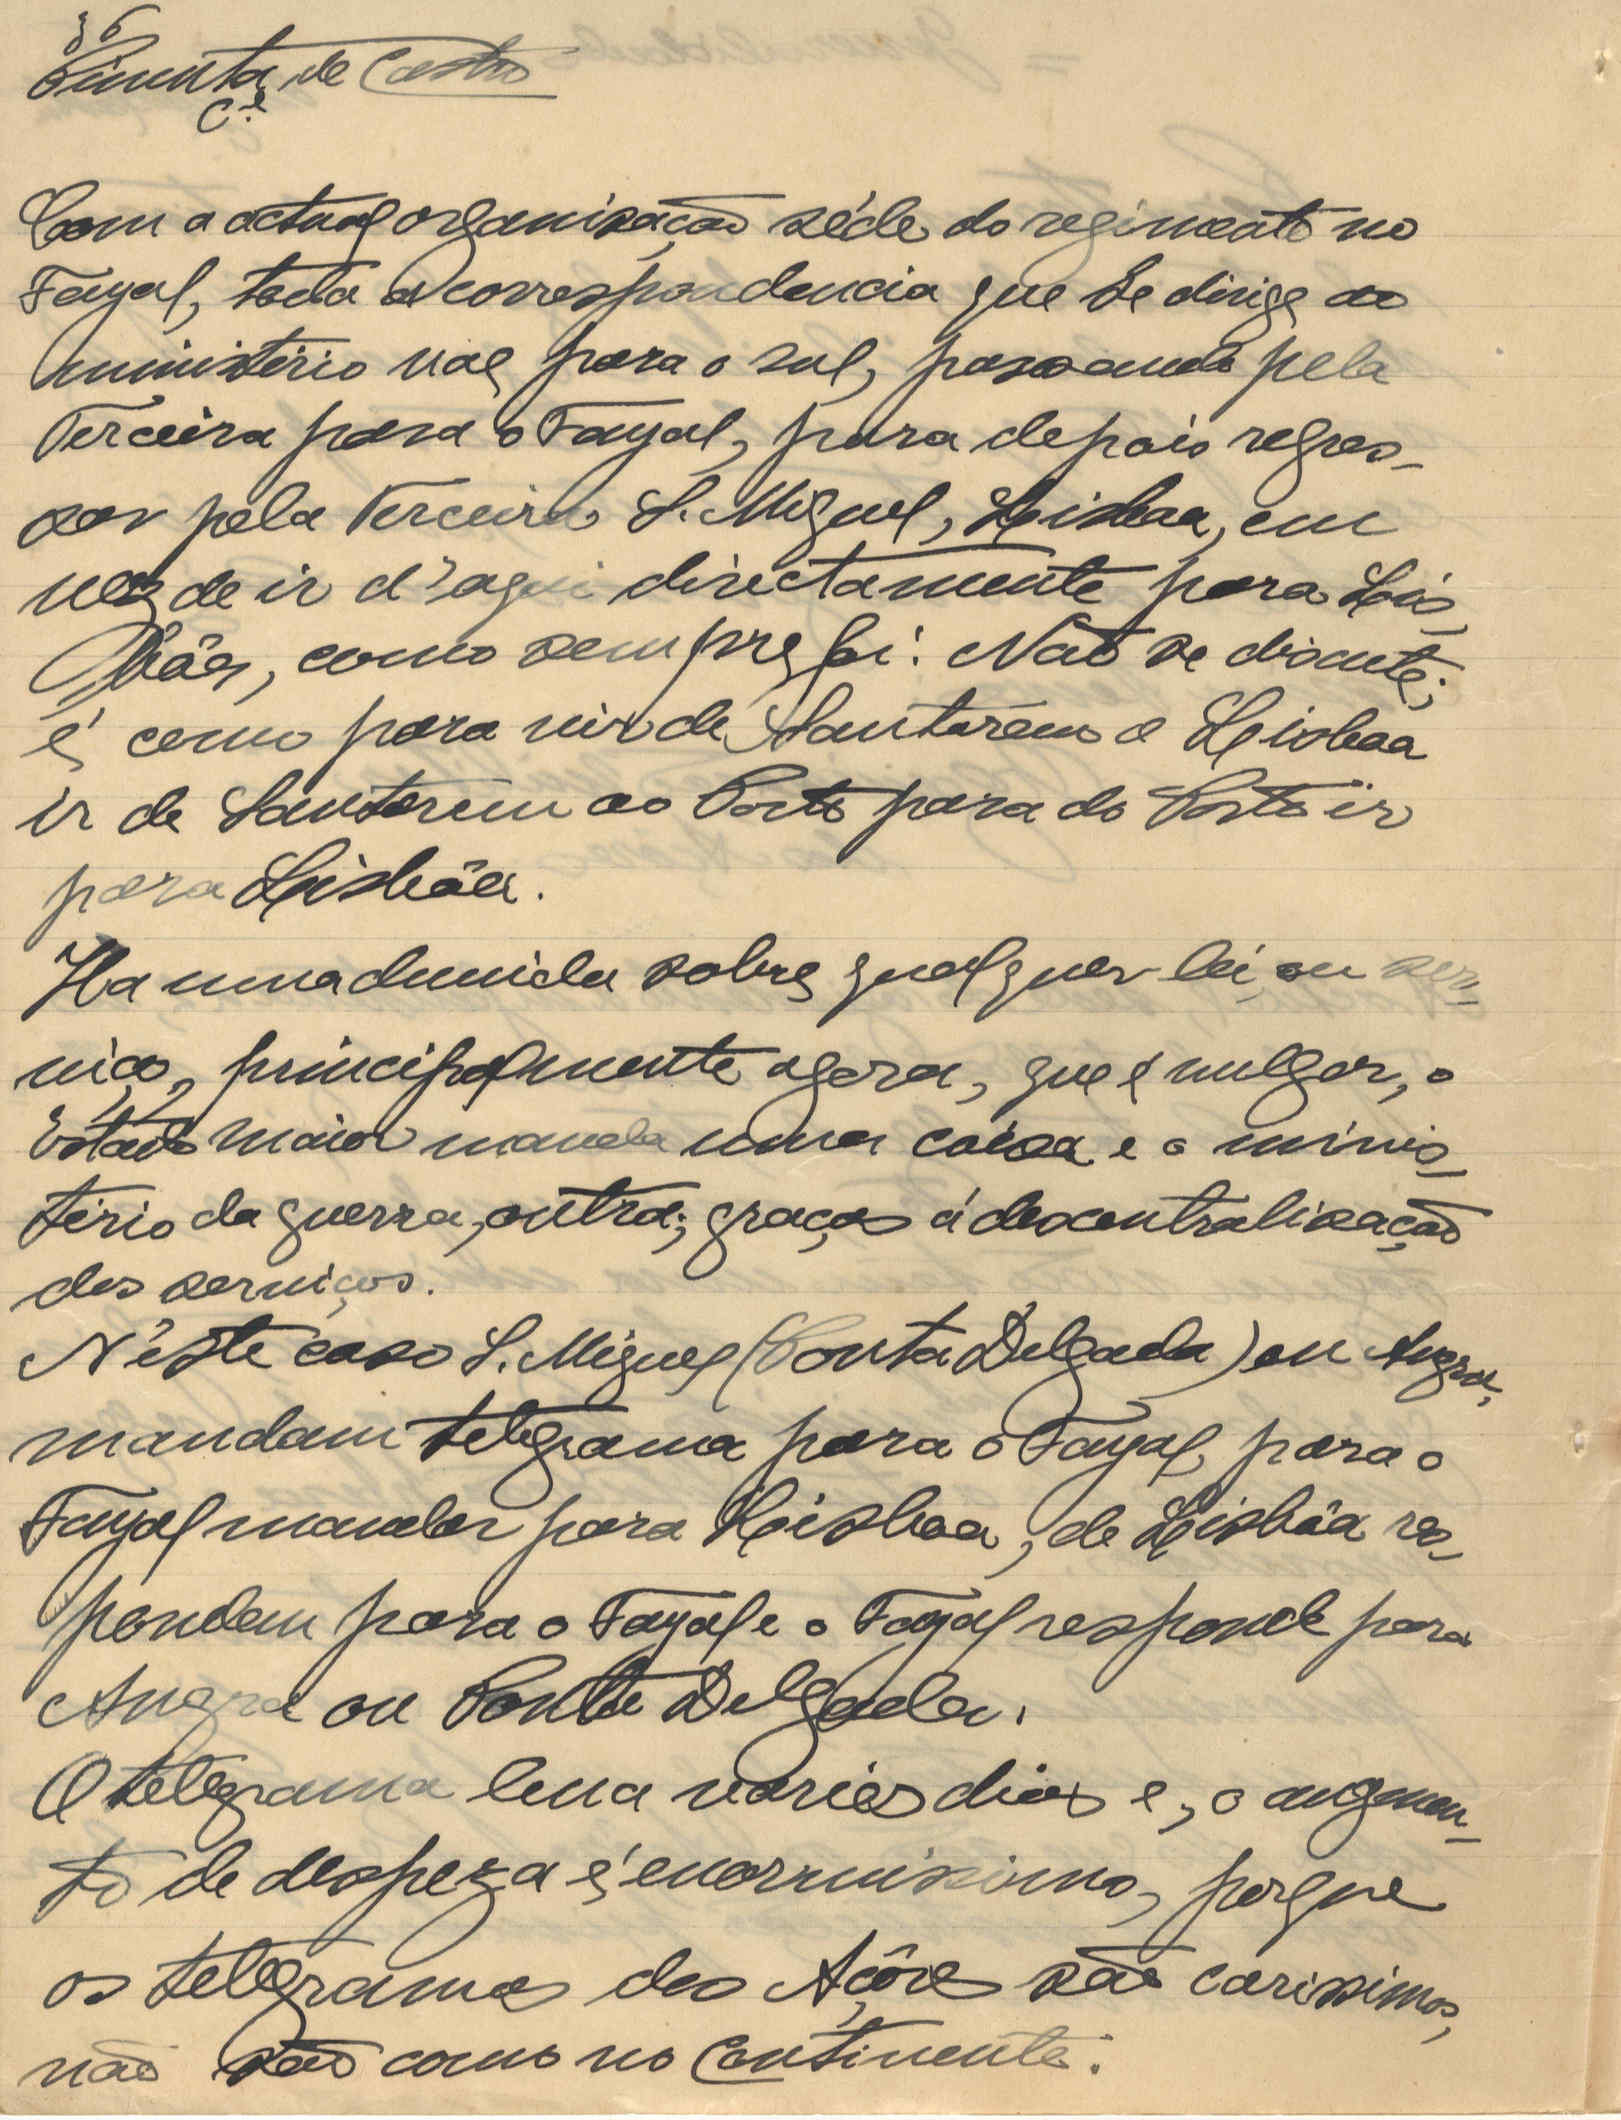 36
Pimenta de Castro
C.el
Com a actual organisação séde do regimento no
Fayal, toda a correspondencia que se dirige ao
ministério vae para o sul, passando pela
Terceira para o Fayal, para depois regres-
sar pela Terceira S. Miguel, Lisboa, em
vez de ir d'aqui directamente para Lis-
bôa, como sempre foi. Não se discute;
é como para vir de Santarem a Lisboa
ir de Santarem ao Porto para do Porto ir
para Lisbôa.
Ha uma duvida sobre qualquer lei, ou ser-
viço, principalmente agora, que é vulgar, o
Estado maior manda uma coisa e o minis-
tério da guerra, outra; graças á descentralisação
dos serviços.
N'éste caso S. Miguel (Ponta Delgada) ou Angra,
mandam telegrama para o Fayal, para o
Fayal mandar para Lisboa, de Lisbôa res-
pondem para o Fayal e o Fayal responde para
Angra ou Ponta Delgada.
O telegrama leva varios dias e, o augmen-
to de despeza é enormissimo, porque
os telegramas dos Açôres são carissimos,
não são como no Continente.